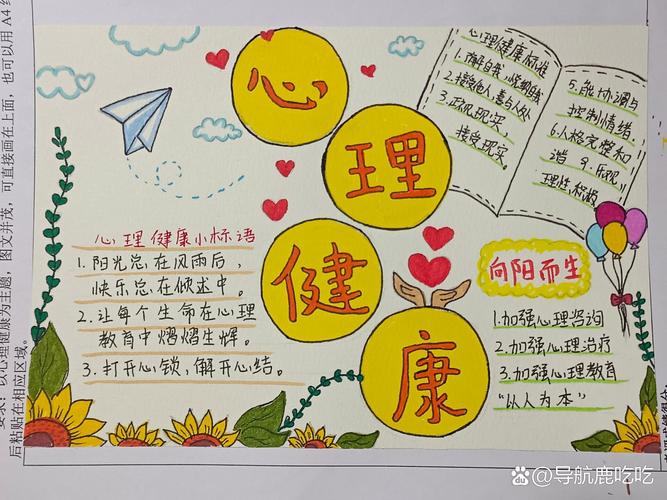 心
理
健
康
心理健康标准
1.了解自我,悦纳自我
2.接受他人,善与人处
3.正视现实,
接受现实。
5.能协调与
控制情绪。
6.人格完整和
谐
乐观
理性 积极
心理健康小标语
1.阳光总在风雨后,
快乐总在倾述中。
2.让每个生命在心理
教育中熠熠生辉。
3.打开心锁,解开心结。
向阳而生
1.加强心理咨询
2.加强心理治疗
3.加强心理教育
“以人为本”
要求:以心理健康为主题,图文并茂,可直接画在上面,也可以用 A4
后粘贴在相应区域。
导航鹿吃吃